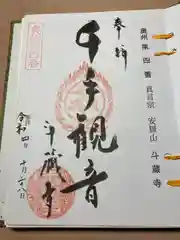 奉拝
千手観音
斗蔵寺
令和四年
十月二十八日
奥州第四番
真言宗 安狐山 斗蔵寺